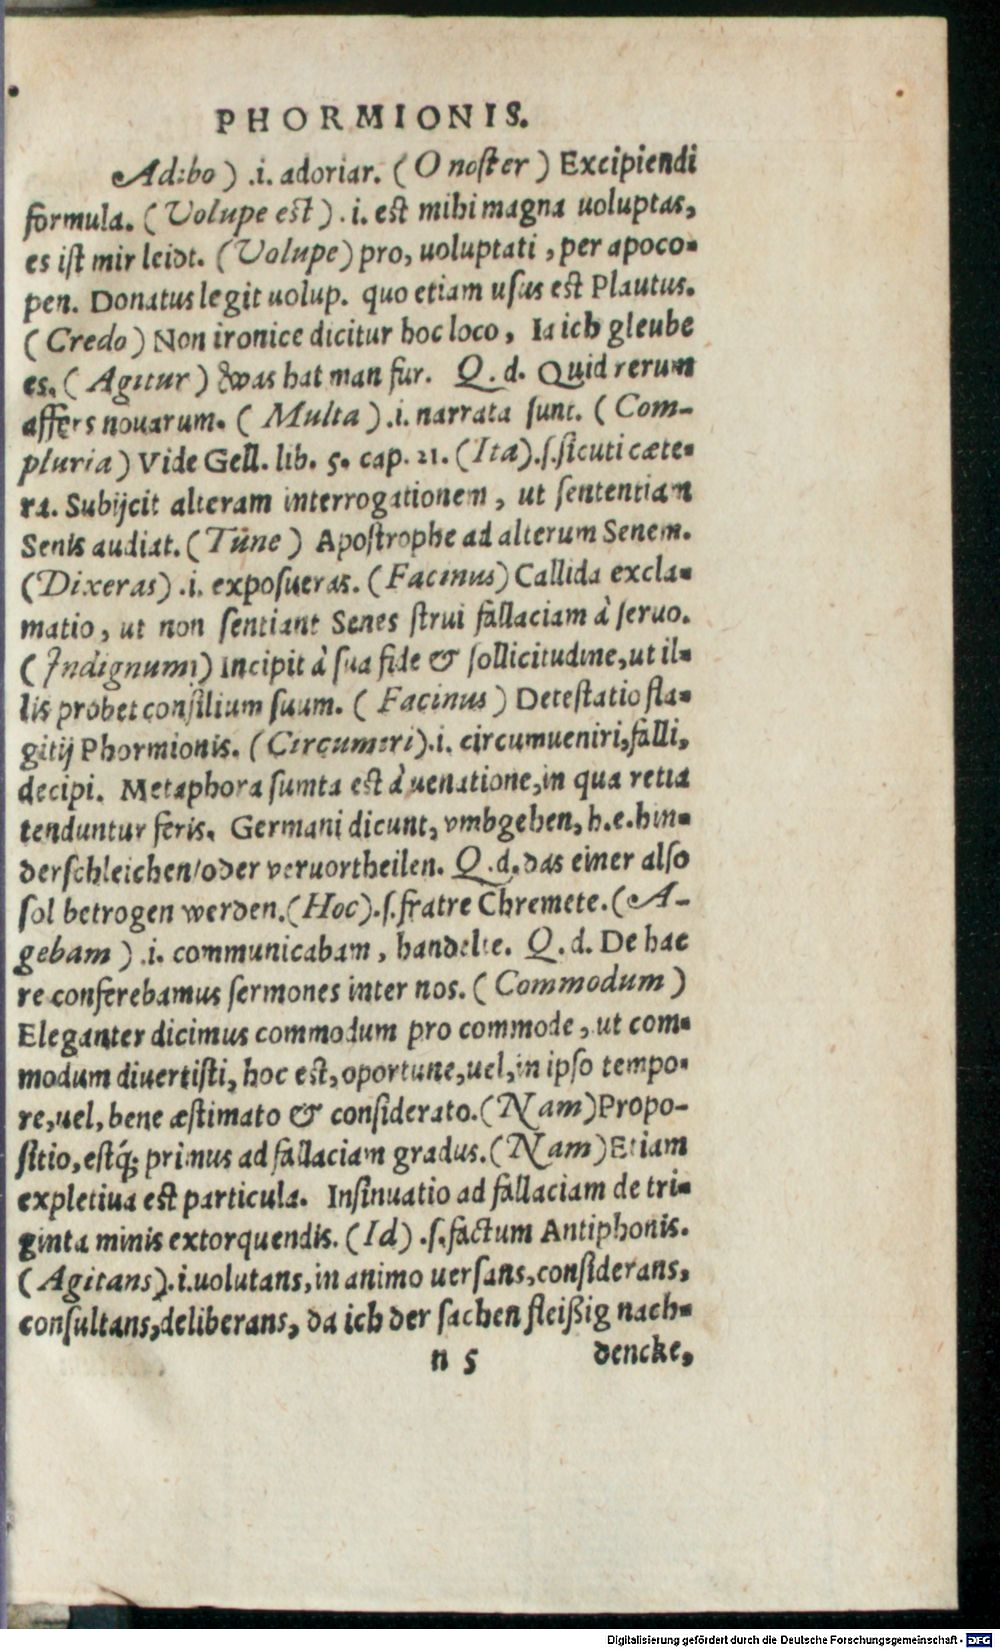 PHORMIONIS.
Adibo) .i. adoriar. (O noster) Excipiendi
formula. (Uolupe est) .i. est mihi magna uoluptas,
es ist mir leidt. (Uolupe) pro, uoluptati, per apoco-
pen. Donatus legit uolup. quo etiam usus est Plautus.
(Credo) Non ironice dicitur hoc loco, Ia ich gleube
es. (Agitur) was hat man fur. Q. d. Quid rerum
affers nouarum. (Multa) .i. narrata sunt. (Com-
pluria) Vide Gell. lib. 5. cap. 21. (Ita) .s. sicuti cæte-
ra. Subijcit alteram interrogationem, ut sententiam
Senis audiat. (Túne) Apostrophe ad alterum Senem.
(Dixeras) .i. exposueras. (Facinus) Callida excla-
matio, ut non sentiant Senes strui fallaciam à seruo.
(Indignum) Incipit à sua fide & sollicitudine, ut il-
lis probet consilium suum. (Facinus) Detestatio fla-
gitij Phormionis. (Circumiri) .i. circumueniri, falli,
decipi. Metaphora sumta est à uenatione, in qua retia
tenduntur feris. Germani dicunt, vmbgehen, h.e. hin-
derschleichen/oder veruortheilen. Q. d. das einer also
sol betrogen werden. (Hoc) .s. fratre Chremete. (A-
gebam) .i. communicabam, handelte. Q. d. De hac
re conferebamus sermones inter nos. (Commodum)
Eleganter dicimus commodum pro commode, ut com-
modum diuertisti, hoc est, oportune, uel, in ipso tempo-
re, uel, bene æstimato & considerato. (Nam) Propo-
sitio, estq́; primus ad fallaciam gradus. (Nam) Etiam
expletiua est particula. Insinuatio ad fallaciam de tri-
ginta minis extorquendis. (Id) .s. factum Antiphonis.
(Agitans) .i. uolutans, in animo uersans, considerans,
consultans, deliberans, da ich der sachen fleißig nach-
n 5 dencke,
Digitalisierung gefördert durch die Deutsche Forschungsgemeinschaft - DFG